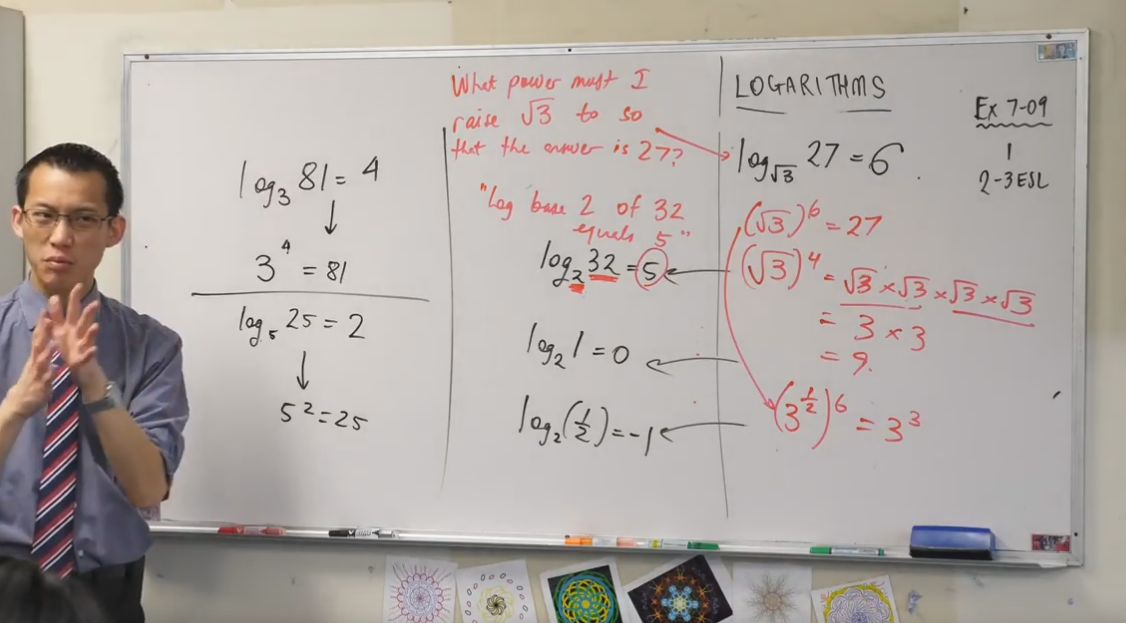 log₃ 81 = 4
↓
3⁴ = 81
log₅ 25 = 2
↓
5² = 25
What power must I
raise √3 to so
that the answer is 27?
"Log base 2 of 32
equals 5"
log₂ 32 = 5
log₂ 1 = 0
log₂(½) = -1
LOGARITHMS
log_√3 27 = 6
(√3)⁶ = 27
(√3)⁴ = √3 × √3 × √3 × √3
= 3 × 3
= 9.
(3^½)⁶ = 3³
Ex 7-09
1
2-3 ESL